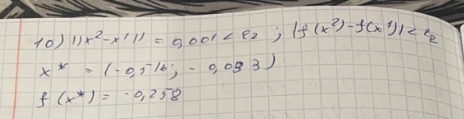 10) ||x²-x¹|| = 0,001 < ε₂ ; |f(x²)-f(x¹)| < ε₂
x* = (-0,516; -0,093)
f(x*) = -0,258